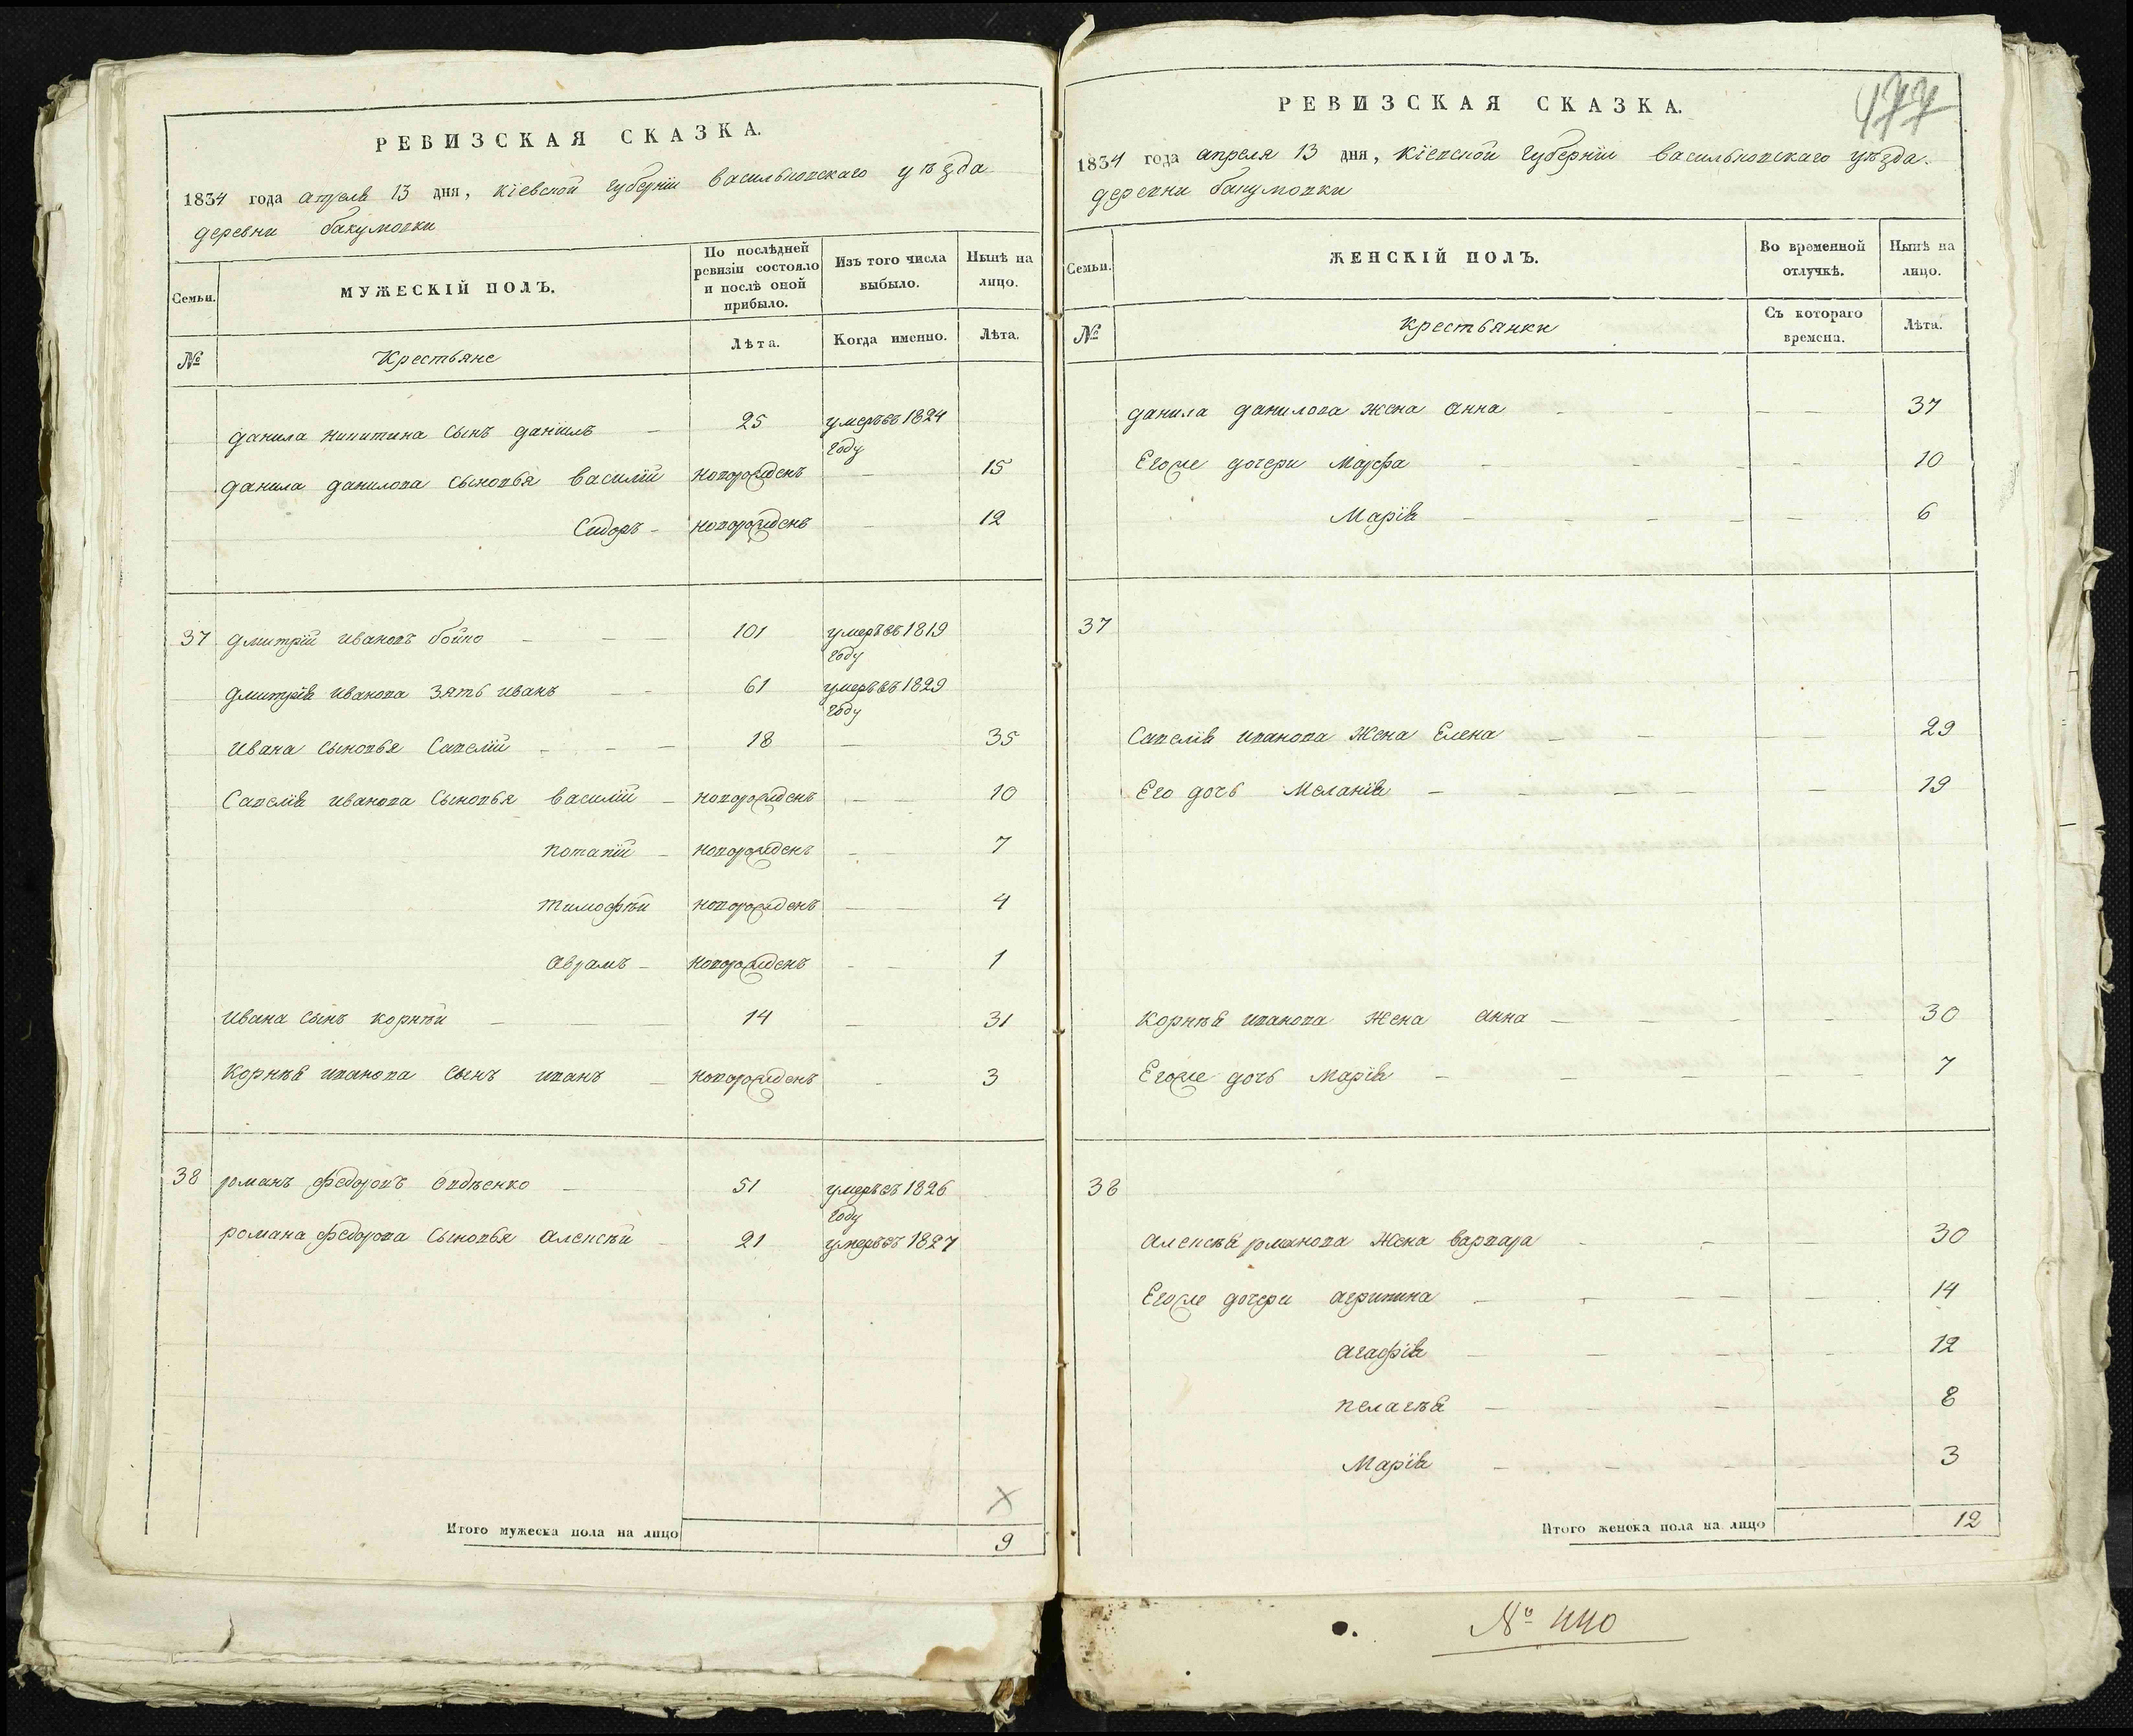 РЕВИЗСКАЯ СКАЗКА.
1834 года апреля 13 дня, Кіевской губерніи Васильковскаго уѣзда
деревни бакумовки
Семьи. МУЖЕСКІЙ ПОЛЪ. По послѣдней ревизіи состояло и послѣ оной прибыло. Изъ того числа выбыло. Нынѣ на лицо.
№ Крестьяне Лѣта. Когда именно. Лѣта.
данила никитина сынъ даніилъ — 25 умеръ въ 1824 году
данила данилова сыновья василій новорожденъ — 15
Сидоръ - новорожденъ — 12
37 дмитрій ивановъ бойко — — — 101 умеръ въ 1819 году
дмитрія иванова зять иванъ — — 61 умеръ въ 1829 году
ивана сыновья Савелій — — — 18 — 35
Савелія иванова сыновья василій — новорожденъ — — 10
потапій — новорожденъ — — 7
тимофѣй новорожденъ — — 4
аврамъ — новорожденъ — — 1
ивана сынъ корнѣй — — 14 — 31
Корнѣя иванова сынъ иванъ — новорожденъ — 3
38 романъ федоровъ овдѣенко — 51 умеръ въ 1826 году
романа федорова сыновья алексѣй — 21 умеръ въ 1827
Итого мужеска пола на лицо 9
РЕВИЗСКАЯ СКАЗКА.
477
1834 года апреля 13 дня, Кіевской губерніи васильковскаго уѣзда.
деревни бакумовки
Семьи. ЖЕНСКІЙ ПОЛЪ. Во временной отлучкѣ. Нынѣ на лицо.
№ Крестьянки Съ котораго времени. Лѣта.
данила данилова жена анна — — — — 37
Егоже дочери Марфа — — — — 10
Марія — — — — — 6
37
Савелія иванова жена Елена — — — — 29
Его дочь Меланія — — — — — 19
Корнѣя иванова жена анна — — — — 30
Егоже дочь Марія — — — — — 7
38
алексѣя романова жена варвара — — — 30
Егоже дочери агрипина — — — — — 14
агафія — — — — 12
пелагѣя — — — 8
Марія — — — 3
Итого женска пола на лицо 12
№ 440